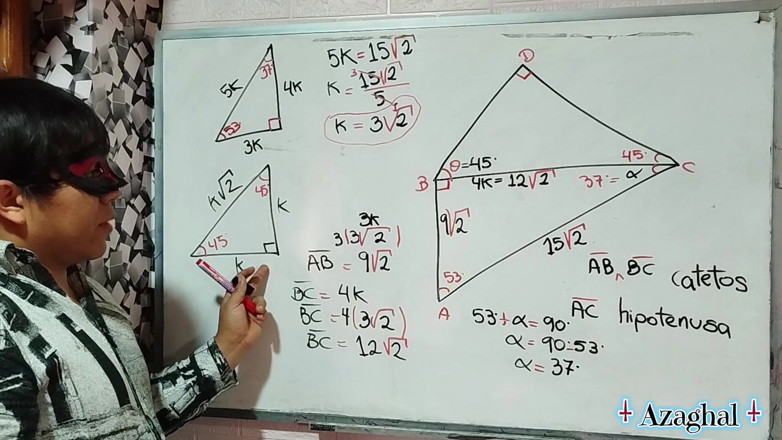 5K
37
4K
53
3K
K√2
45
K
45
K
5K = 15√2
K = 15√2 / 5
3
K = 3√2
3K
3(3√2)
AB = 9√2
BC = 4K
BC = 4(3√2)
BC = 12√2
D
B
θ=45°
45°
C
4K = 12√2
37° = α
9√2
15√2
53
A
AB ∧ BC catetos
AC hipotenusa
53° + α = 90°
α = 90°-53°
α = 37°
Azaghal